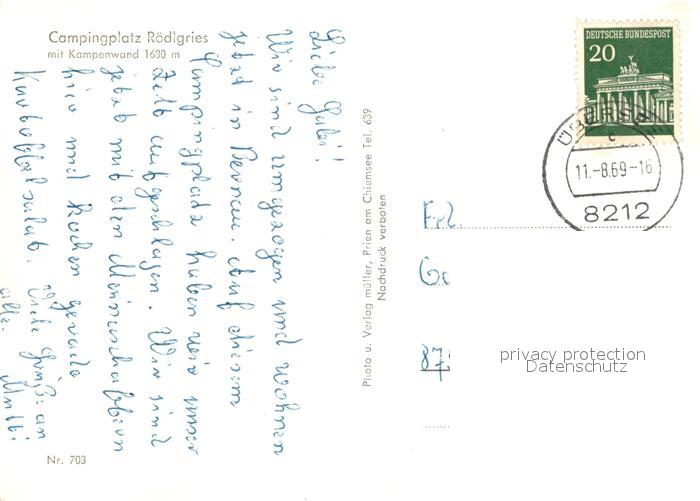 Campingplatz Rödlgries
mit Kampenwand 1680 m
Liebe Gabi!
Wir sind umgezogen und wohnen
jetzt in Bernau. Auf diesem
Campingplatz haben wir unser
Zelt aufgeschlagen. Wir sind
jetzt mit den
hier und kochen gerade
Kartoffelsalat. Viele Grüße an
alle.
Mutti
Nr. 703
Photo u. Verlag müller, Prien am Chiemsee Tel. 639
Nachdruck verboten
DEUTSCHE BUNDESPOST
20
ÜBERSEE
c
11.-8.69-16
8212
Frl.
Ga
87
privacy protection
Datenschutz